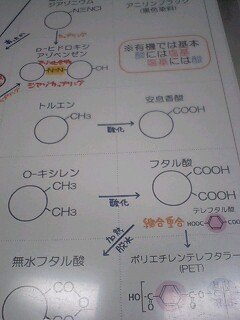 アゾニウム
アニリンブラック
(黒色染料)
N≡NCl
カップリング
p-ヒドロキシ
アゾベンゼン
N=N
OH
ジアゾカップリング
※有機では基本
酸には塩基
塩基には酸
トルエン
安息香酸
CH3
酸化
COOH
o-キシレン
フタル酸
CH3
CH3
酸化
COOH
COOH
テレフタル酸
HOOC
COOH
縮合重合
加熱
脱水
無水フタル酸
ポリエチレンテレフタラー
(PET)
CO
CO
HO
C
O
C
O